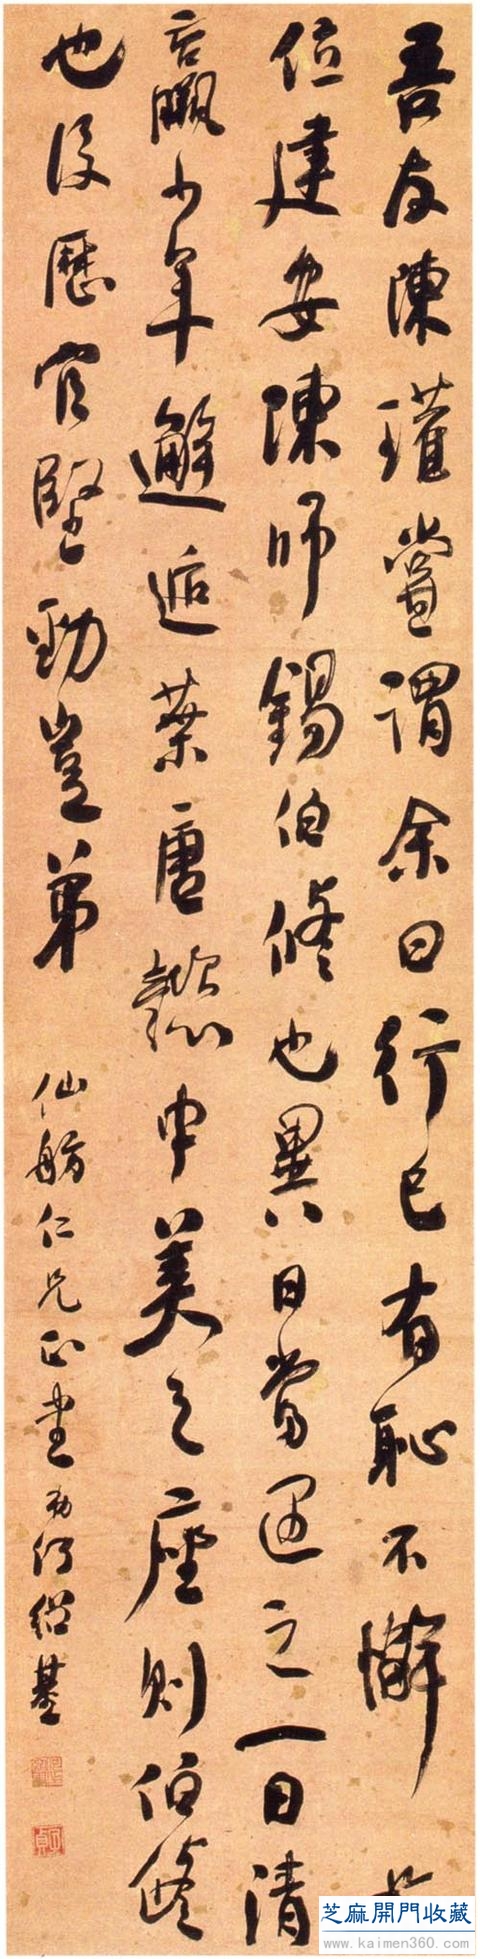 吾友陳瓘嘗謂余曰行己有恥不懈
位建安陳師錫伯修也異日當遇之一日清
羸少年邂逅葉唐懿中美之座則伯修
也後歷官堅勁豈弟
仙舫仁兄正書 弟何紹基
子貞
芝麻開門收藏
www.kaimen360.com